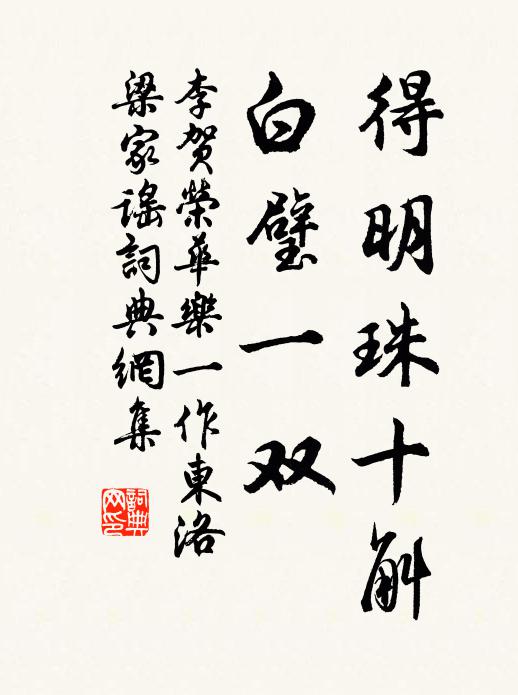 得明珠十斛
白璧一双
李贺榮華樂一作東洛
梁家谣詞典網集
詞典网印